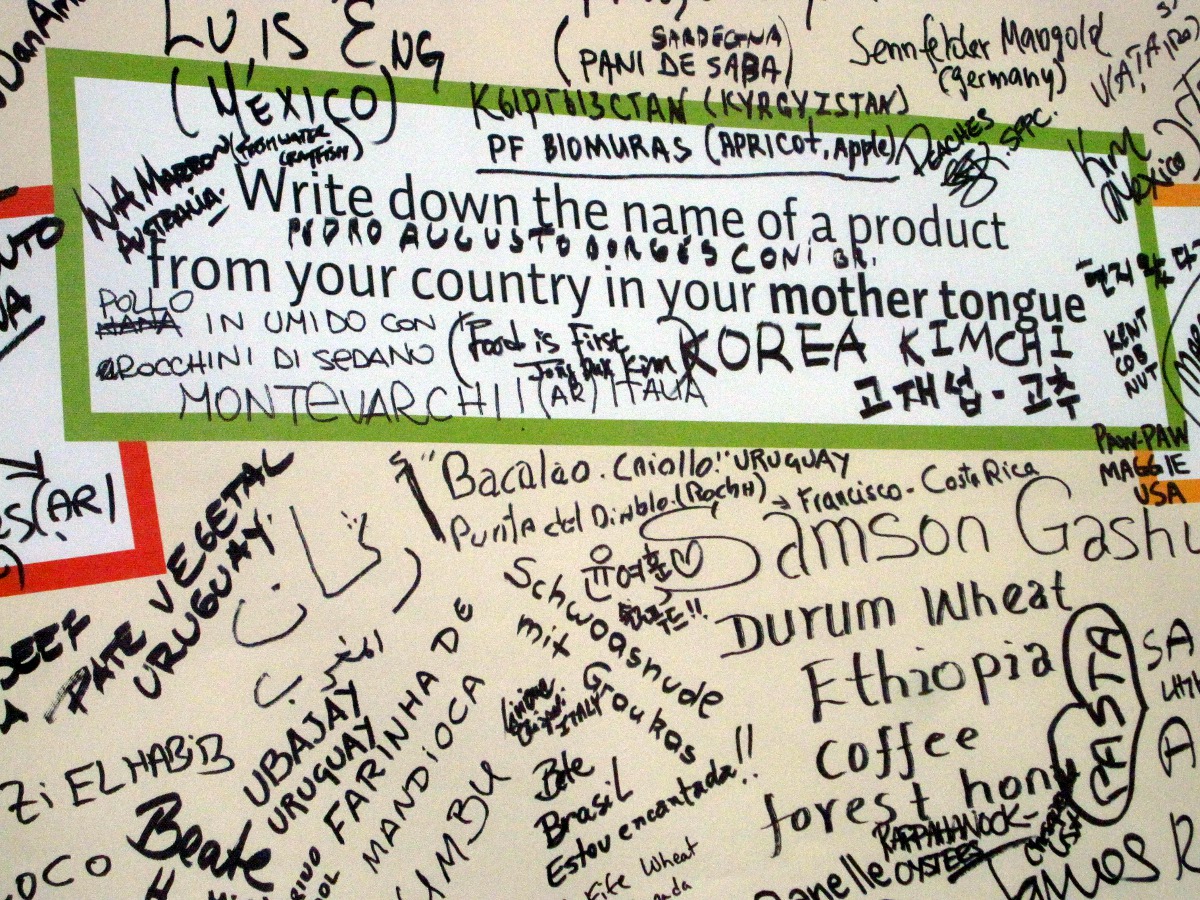 LUIS ENG
(MÉXICO)
SARDEGNA
(PANI DE SABA)
Sennfelder Mangold
(Germany)
КЫРГЫЗСТАН (KYRGYZSTAN)
PF BIOMURAS (APRICOT, Apple)
PEACHES
KIM
(Mexico)
WA MARRON (FRESHWATER
CRAYFISH)
AUSTRALIA.
Write down the name of a product
PEDRO AUGUSTO BORGES CONI BR.
from your country in your mother tongue
POLLO
IN UMIDO CON
ROCCHINI DI SEDANO
MONTEVARCHI (AR) ITALIA
(Food is First
KOREA KIMCHI
고재섭 - 고추
KENT
COB
NUT
PAW-PAW
MAGGIE
USA
(AR)
"Bacalao. Criollo." URUGUAY
Punta del Diablo. (Rocha) → Francisco - Costa Rica
PATE VEGETAL
URUGUAY
Samson Gashu
DURUM Wheat
Ethiopia
coffee
forest hon
PASTA
윤여훈♡
Schwoasnude
mit Groukas
المغرب
Zi ELHABIB
UBAJAY
URUGUAY
FARINHA DE
MANDIOCA
UMBU
ITALY
Bete
Brasil
Estou encantada!!
Fife Wheat
Beate
OCO
RAPPAHANNOCK
OYSTERS
anelle